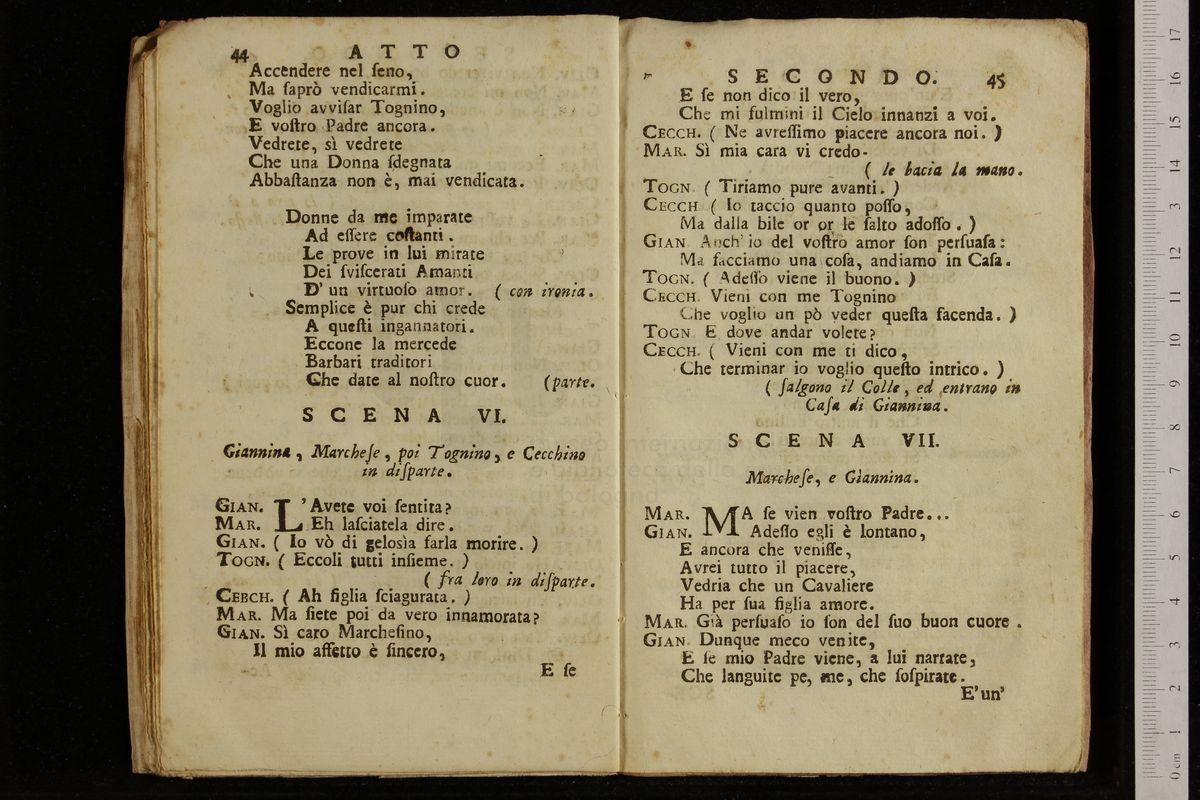 44 ATTO
Accendere nel ſeno,
Ma ſaprò vendicarmi.
Voglio avviſar Tognino,
E voſtro Padre ancora.
Vedrete, sì vedrete
Che una Donna ſdegnata
Abbaſtanza non è, mai vendicata.
Donne da me imparate
Ad eſſere coſtanti.
Le prove in lui mirate
Dei ſviſcerati Amanti
D' un virtuoſo amor. ( con ironia.
Semplice è pur chi crede
A queſti ingannatori.
Eccone la mercede
Barbari traditori
Che date al noſtro cuor. (parte.
SCENA VI.
Giannina, Marcheſe, poi Tognino, e Cecchino
in diſparte.
GIAN. L'Avete voi ſentita?
MAR. Eh laſciatela dire.
GIAN. ( Io vò di gelosìa farla morire. )
TOGN. ( Eccoli tutti inſieme. )
( fra loro in diſparte.
CEBCH. ( Ah figlia ſciagurata. )
MAR. Ma ſiete poi da vero innamorata?
GIAN. Sì caro Marcheſino,
Il mio affetto è ſincero,
E ſe
SECONDO. 45
E ſe non dico il vero,
Che mi fulmini il Cielo innanzi a voi.
CECCH. ( Ne avreſſimo piacere ancora noi. )
MAR. Sì mia cara vi credo-
( le bacia la mano.
TOGN. ( Tiriamo pure avanti. )
CECCH ( Io taccio quanto poſſo,
Ma dalla bile or or le ſalto adoſſo. )
GIAN Anch' io del voſtro amor ſon perſuaſa:
Ma facciamo una coſa, andiamo in Caſa.
TOGN. ( Adeſſo viene il buono. )
CECCH. Vieni con me Tognino
Che voglio un pò veder queſta facenda. )
TOGN. E dove andar volete?
CECCH. ( Vieni con me ti dico,
Che terminar io voglio queſto intrico. )
( ſalgono il Colle, ed entrano in
Caſa di Giannina.
SCENA VII.
Marcheſe, e Giannina.
MAR. MA ſe vien voſtro Padre...
GIAN. Adeſſo egli è lontano,
E ancora che veniſſe,
Avrei tutto il piacere,
Vedria che un Cavaliere
Ha per ſua figlia amore.
MAR. Già perſuaſo io ſon del ſuo buon cuore.
GIAN. Dunque meco venite,
E ſe mio Padre viene, a lui narrate,
Che languite pe, me, che ſoſpirate.
E'un'
0 cm 1 2 3 4 5 6 7 8 9 10 11 12 13 14 15 16 17